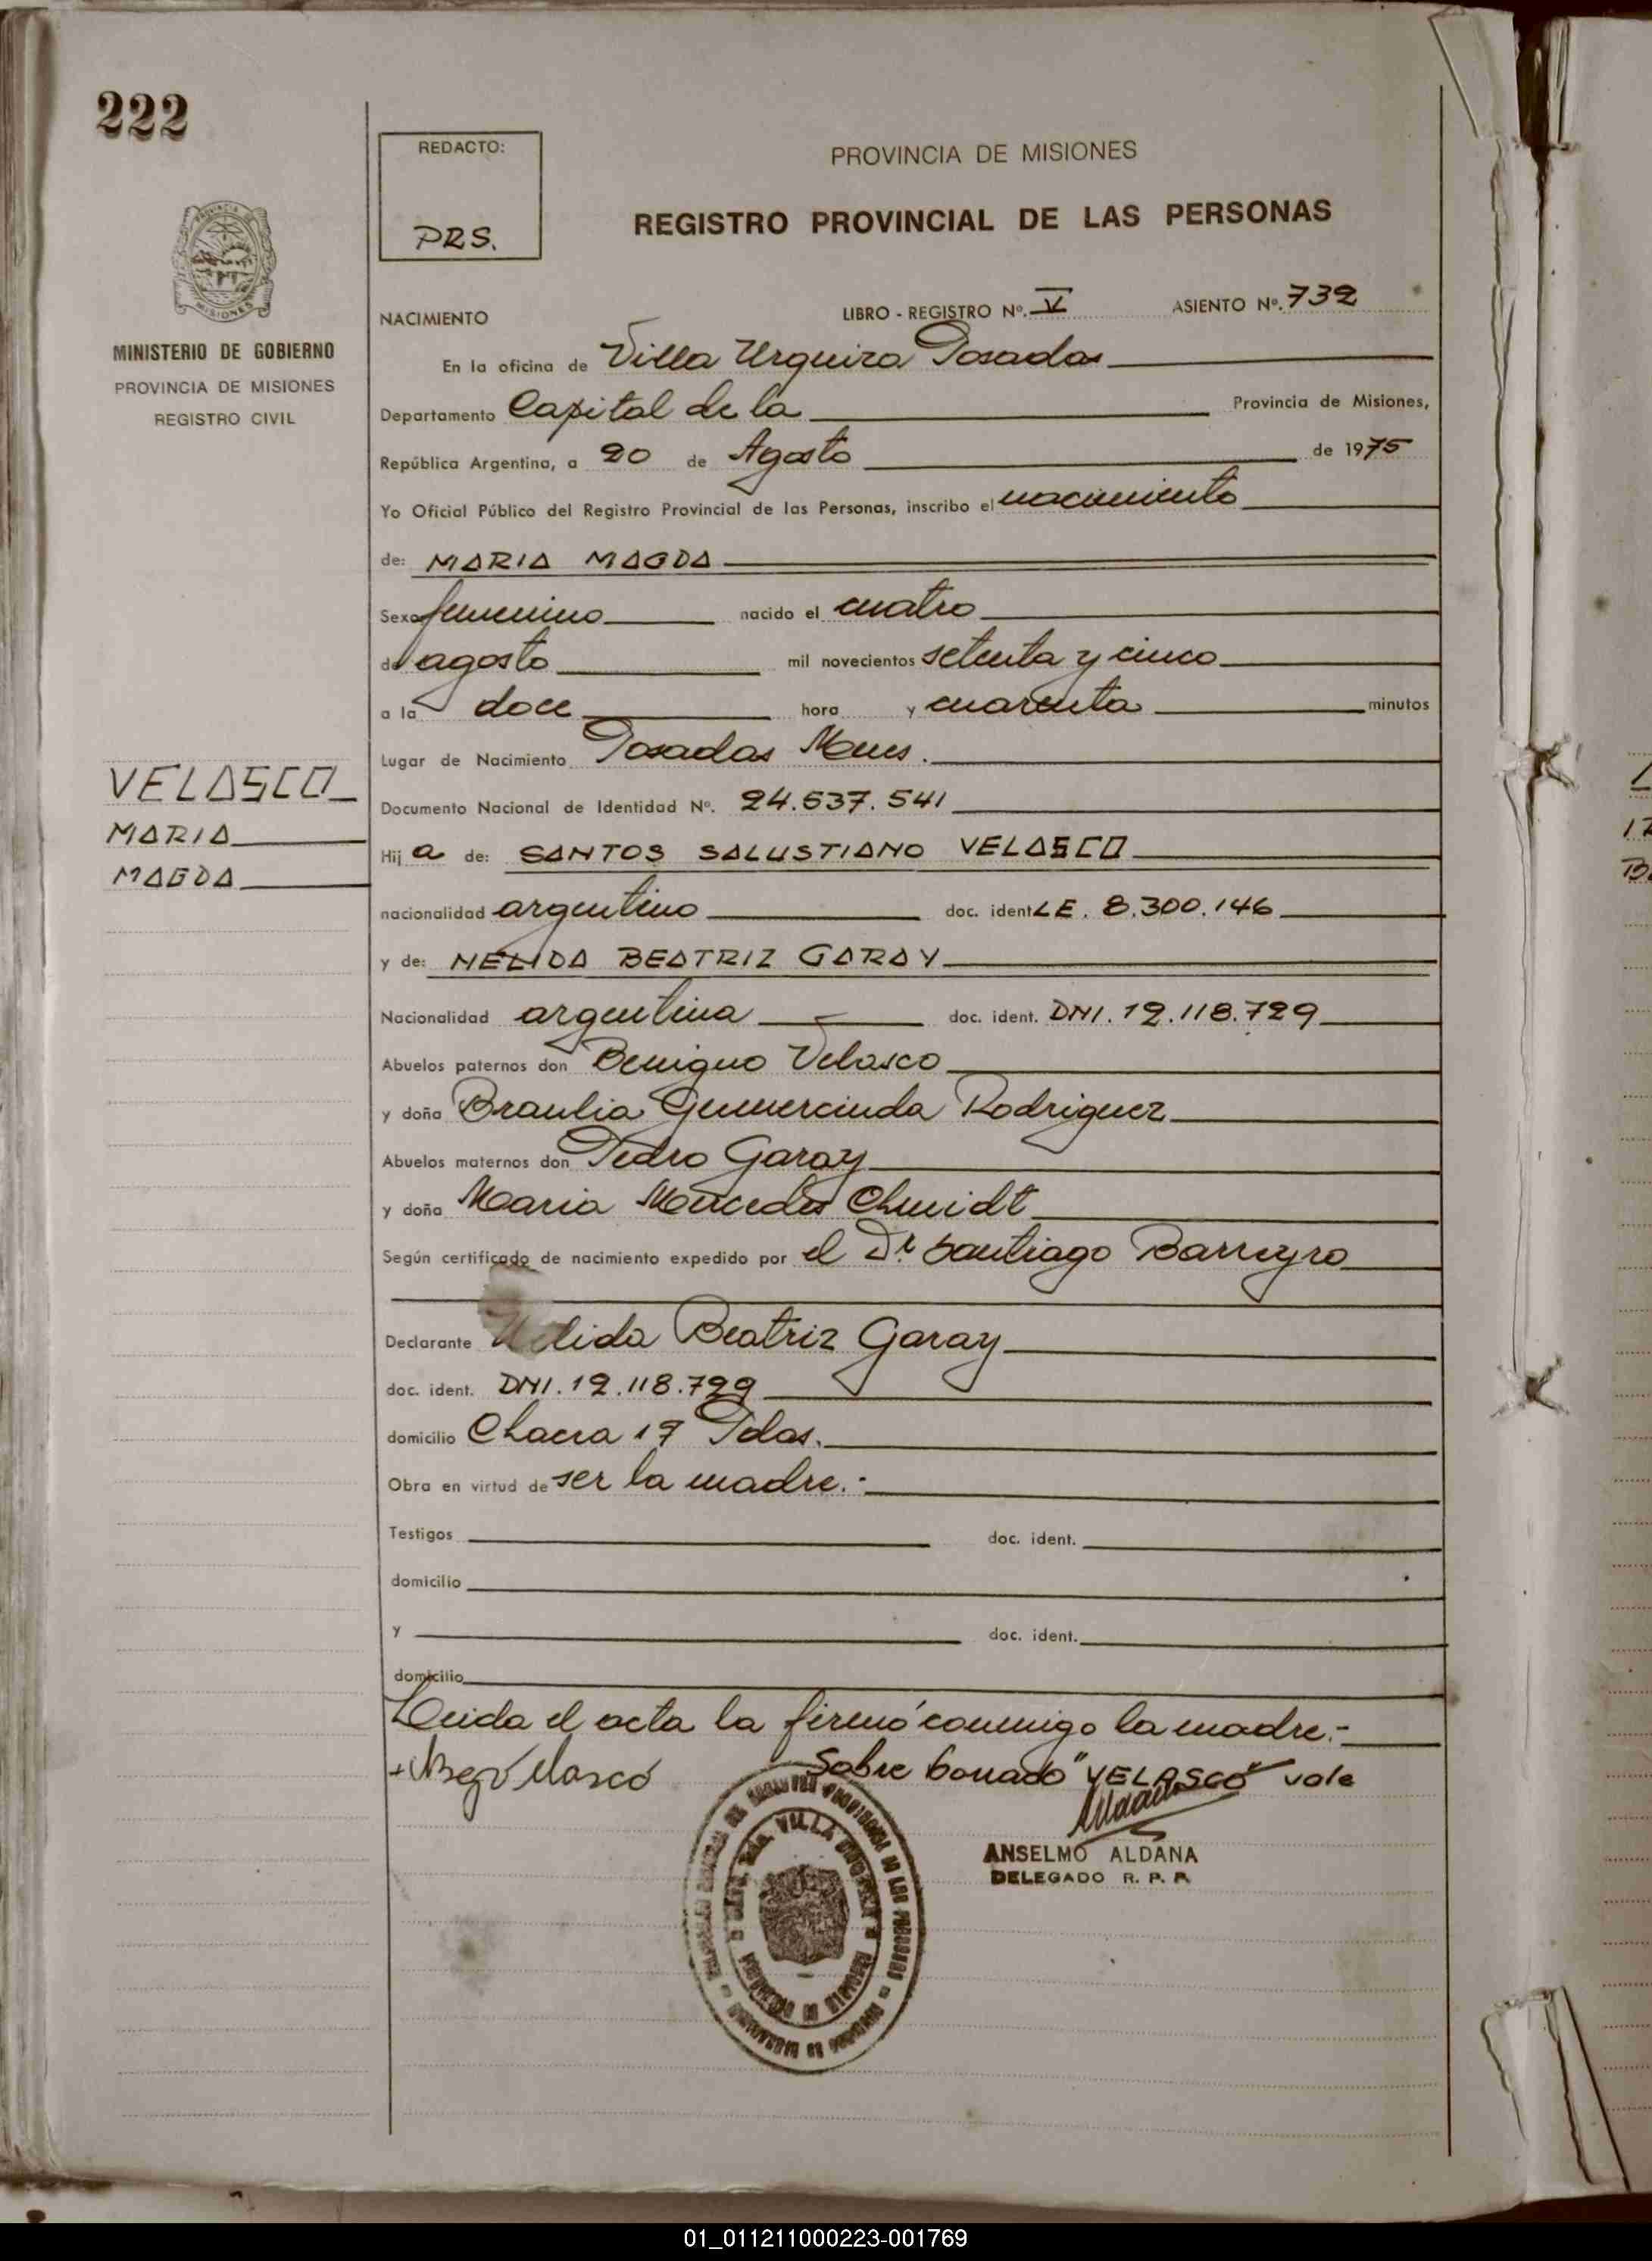 222
REDACTO:
PRS.
PROVINCIA DE MISIONES
REGISTRO PROVINCIAL DE LAS PERSONAS
MINISTERIO DE GOBIERNO
PROVINCIA DE MISIONES
REGISTRO CIVIL
NACIMIENTO LIBRO - REGISTRO Nº. V ASIENTO Nº. 732
En la oficina de Villa Urquiza Posadas
Departamento Capital de la Provincia de Misiones,
República Argentina, a 20 de Agosto de 1975
Yo Oficial Público del Registro Provincial de las Personas, inscribo el nacimiento
de: MARIA MAGDA
Sexo femenino nacido el cuatro
de agosto mil novecientos setenta y cinco
a la doce hora y cuarenta minutos
Lugar de Nacimiento Posadas Mnes.
VELASCO
MARIA
MAGDA
Documento Nacional de Identidad Nº. 24.537.541
Hij a de: SANTOS SALUSTIANO VELASCO
nacionalidad argentino doc. ident LE. 8.300.146
y de: NELIDA BEATRIZ GARAY
Nacionalidad argentina doc. ident. DNI. 12.118.729
Abuelos paternos don Benigno Velasco
y doña Braulia Gumercinda Rodriguez
Abuelos maternos don Pedro Garay
y doña Maria Mercedes Chmidt
Según certificado de nacimiento expedido por el Dr. Santiago Barreyro
Declarante Nelida Beatriz Garay
doc. ident. DNI. 12.118.729
domicilio Chacra 17 Pdas.
Obra en virtud de ser la madre.-
Testigos doc. ident.
domicilio
y doc. ident.
domicilio
Leida el acta la firmó conmigo la madre.-
Sobre borrado "VELASCO" vale
VILLA URQUIZA
ANSELMO ALDANA
DELEGADO R. P. P.
01_011211000223-001769